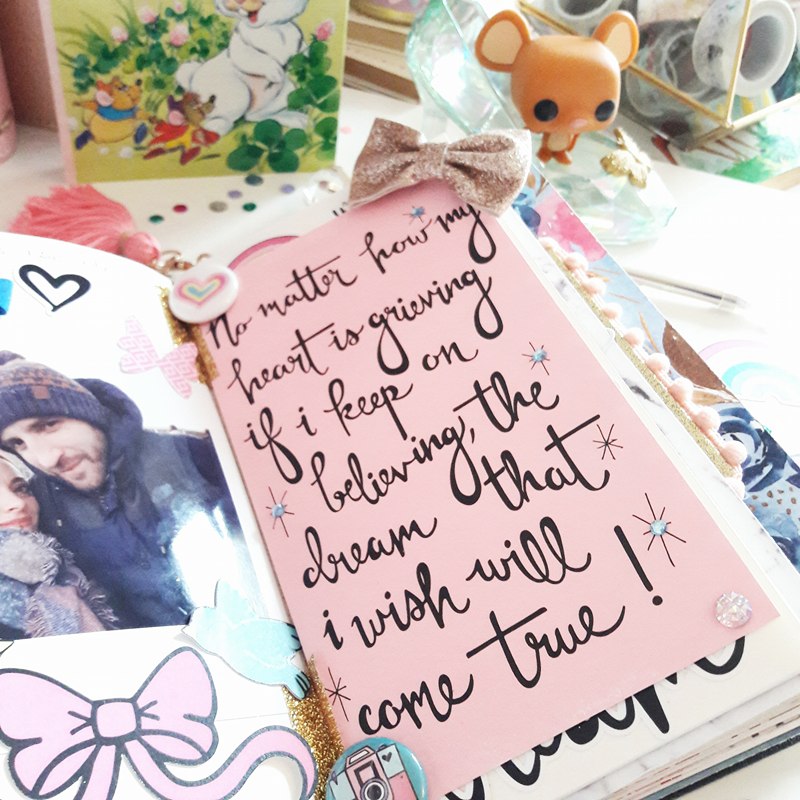 No matter how my
heart is grieving
if i keep on
believing, the
dream that
i wish will
come true!